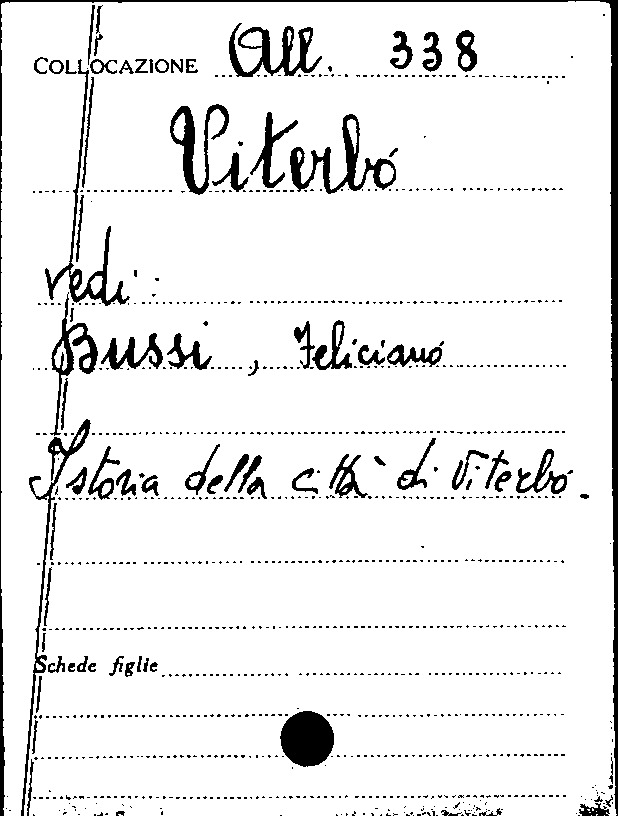 COLLOCAZIONE All. 338
Viterbo
vedi:
Bussi, Feliciano
Istoria della città di Viterbo.
Schede figlie